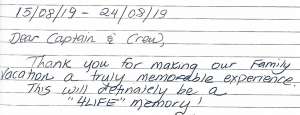 15/08/19 - 24/08/19
Dear Captain & Crew,
Thank you for making our Family
vacation a truly memorable experience.
This will definately be a
"4LIFE" memory!